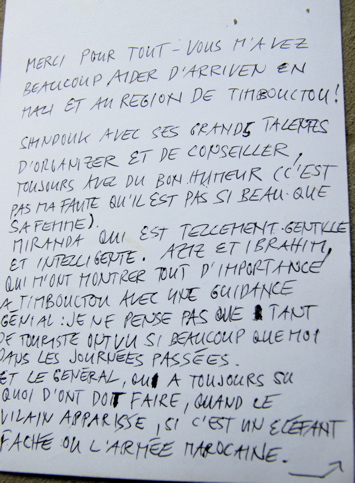 MERCI POUR TOUT - VOUS M'AVEZ
BEAUCOUP AIDER D'ARRIVEN EN
MALI ET AU REGION DE TIMBOUCTOU!
SHINDOUK AVEC SES GRANDS TALENTS
D'ORGANIZER ET DE CONSEILLER,
TOUJOURS AVEZ DU BON HUMEUR (C'EST
PAS MA FAUTE QU'IL EST PAS SI BEAU QUE
SA FEMME).
MIRANDA QUI EST TELLEMENT GENTILLE
ET INTELLIGENTE. AZIZ ET IBRAHIM,
QUI M'ONT MONTRER TOUT D'IMPORTANCE
A TIMBOUCTOU AVEC UNE GUIDANCE
GÉNIAL: JE NE PENSE PAS QUE TANT
DE TOURISTE ONT VU SI BEAUCOUP QUE MOI
DANS LES JOURNÉES PASSÉES.
ET LE GENERAL, QUI A TOUJOURS SU
QUOI D'ONT DOIT FAIRE, QUAND LE
VILAIN APPARISSE, SI C'EST UN ELÉFANT
FACHÉ OU L'ARMÉE MAROCAINE.